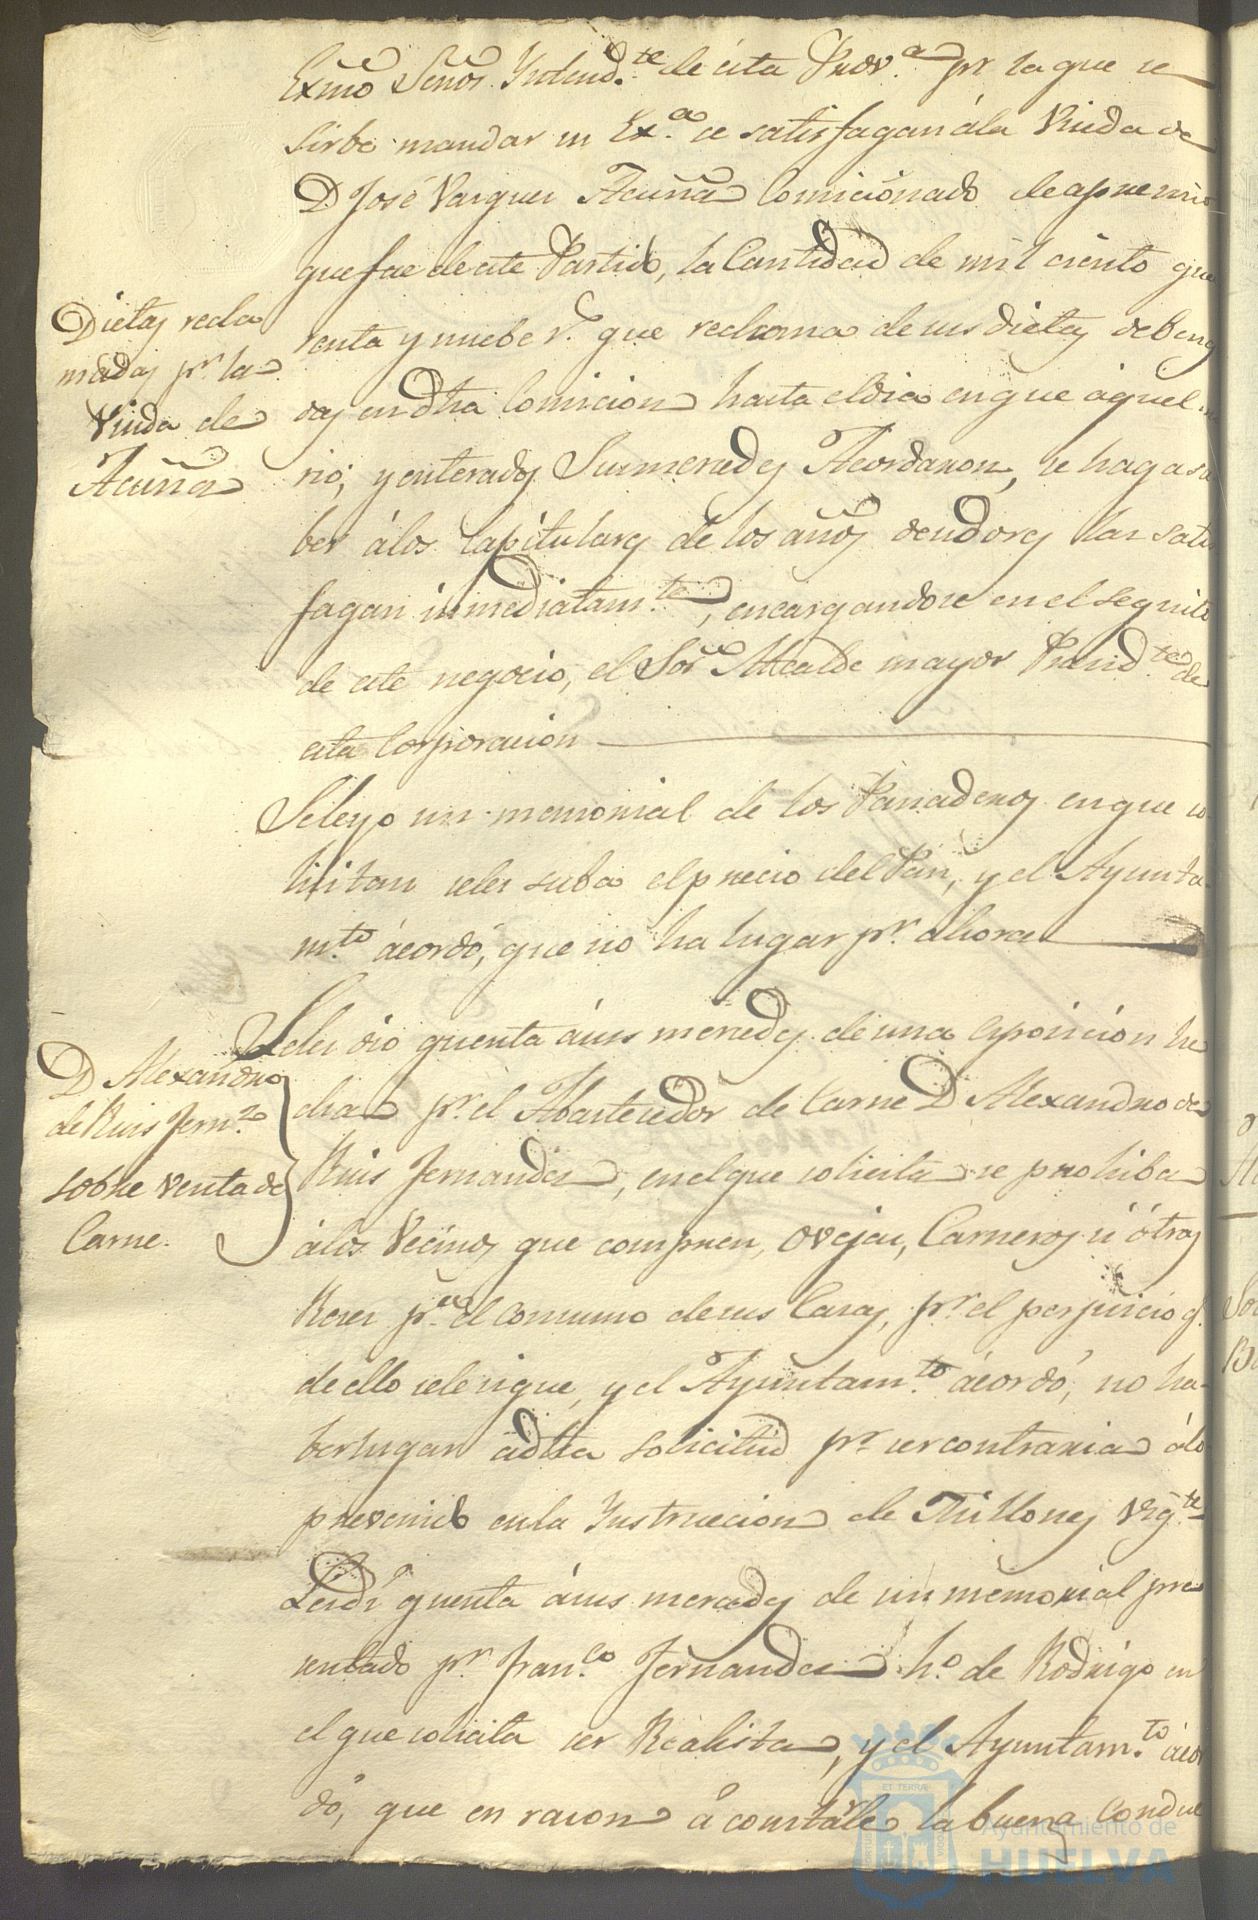 Exmo Señor Intend.te de esta Prov.a pr la que se
sirbe mandar su Ex.a se satisfagan á la Viuda de
D José Vasques Acuña Comicionado de apremio
que fue de este Partido, la Cantidad de mil ciento qua
Dietas recla
madas pr. la
Viuda de
Acuña
renta y nuebe r.s que reclama de sus dietas debenga
das en dha Comicion hasta el dia en que aquel mu
rio; y enterados Sus mercedes Acordaron, se haga sa
ber á los Capitulares de los años deudores las satis
fagan inmediatam.te, encargandose en el seguito
de este negocio, el Sor. Alcalde mayor Presid.te de
esta Corporacion
Se leyo un memorial de los Panaderos en que so
licitan seles suba el precio del Pan, y el Ayunta
m.to ácordó, que no ha lugar pr. ahora
D Alexandro
de Ruis Fern.z
sobre venta de
Carne.
Seles dio quenta á sus mercedes de una esposicion he
cha pr. el Abastecedor de Carne D Alexandro de
Ruis Fernandes, en el que solicita se prohiba
á los Vecinos que compren, Ovejas, Carneros ú ótras
Reses p.a el consumo de sus Casas, pr. el perjuicio q.
de ello sele sigue, y el Ayuntam.to ácordó, no ha
ber lugar á dha solicitud pr. ser contraria á lo
prevenido en la Instruccion de Millones Vig.te
Les dí quenta á sus mercedes de un memorial pre
sentado pr. Fran.co Fernandes h.o de Rodrigo en
el que solicita ser Realista, y el Ayuntam.to ácor
dó, que en racion á constarle la buena Condue
ET TERRÆ
Ayuntamiento de
HUELVA